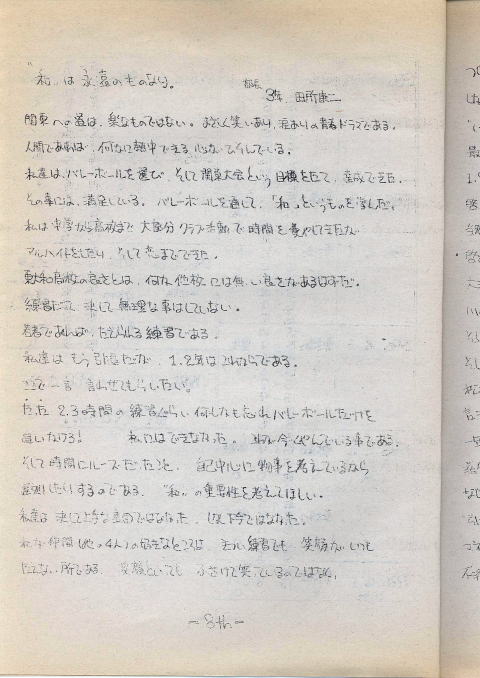 "和"は永遠のものなり。
部長
3年 田所康二
関東への道は、楽なものではない。まさしく笑いあり、涙ありの青春ドラマである。
人間であれば、何かに熱中できる
私達は、バレーボールを選び、そして関東大会という目標をたて、達成できた。
その事には、満足している。バレーボールを通して、"和"というものを学んだ。
私は中学から高校まで大部分クラブ活動で時間を費やしてきたが
アルバイトをしたり、そして恋までできた。
東大和高校の良さとは、何か他校には無い良さがあるはずだ。
練習だって決して無理な事はしていない。
若者であれば、たえられる練習である。
私達はもう引退だが、1.2年はこれからである。
ここで一言言わせてもらいたい。
ただ2.3時間の練習ぐらい何もかも忘れバレーボールだけを
追いかけろ! 私にはできなかった。今くやんでいる事である。
そして時間にルーズだったこと、自己中心に物事を考えているなら
"和"の重要性を考えてほしい。
私達は決して上手な集団ではなかった。
私が仲間(他の4人)の好きなところは、きつい練習でも、笑顔がいつも
たえない所である。笑顔といっても、ふざけて笑っているのではない。
-8th-